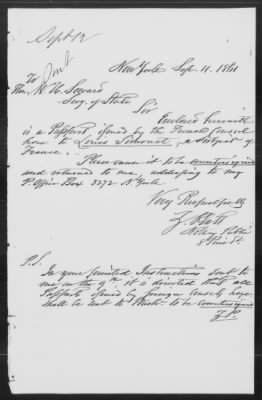 Sept 12
New York Sep. 11. 1861
To
Hon. W. H. Seward
Secy. of State
Sir
Enclosed herewith
is a Passport, issued by the French Consul
here to Louis, a subject of
France.
Please cause it to be countersigned
and returned to me, addressing to my
P. Office Box 3272 N York.
Very Respectfully
Notary Public
P.S.
In your printed Instructions sent to
me on the 9th it is directed that all
Passports issued by foreign Consuls here
shall be sent to to be countersigned